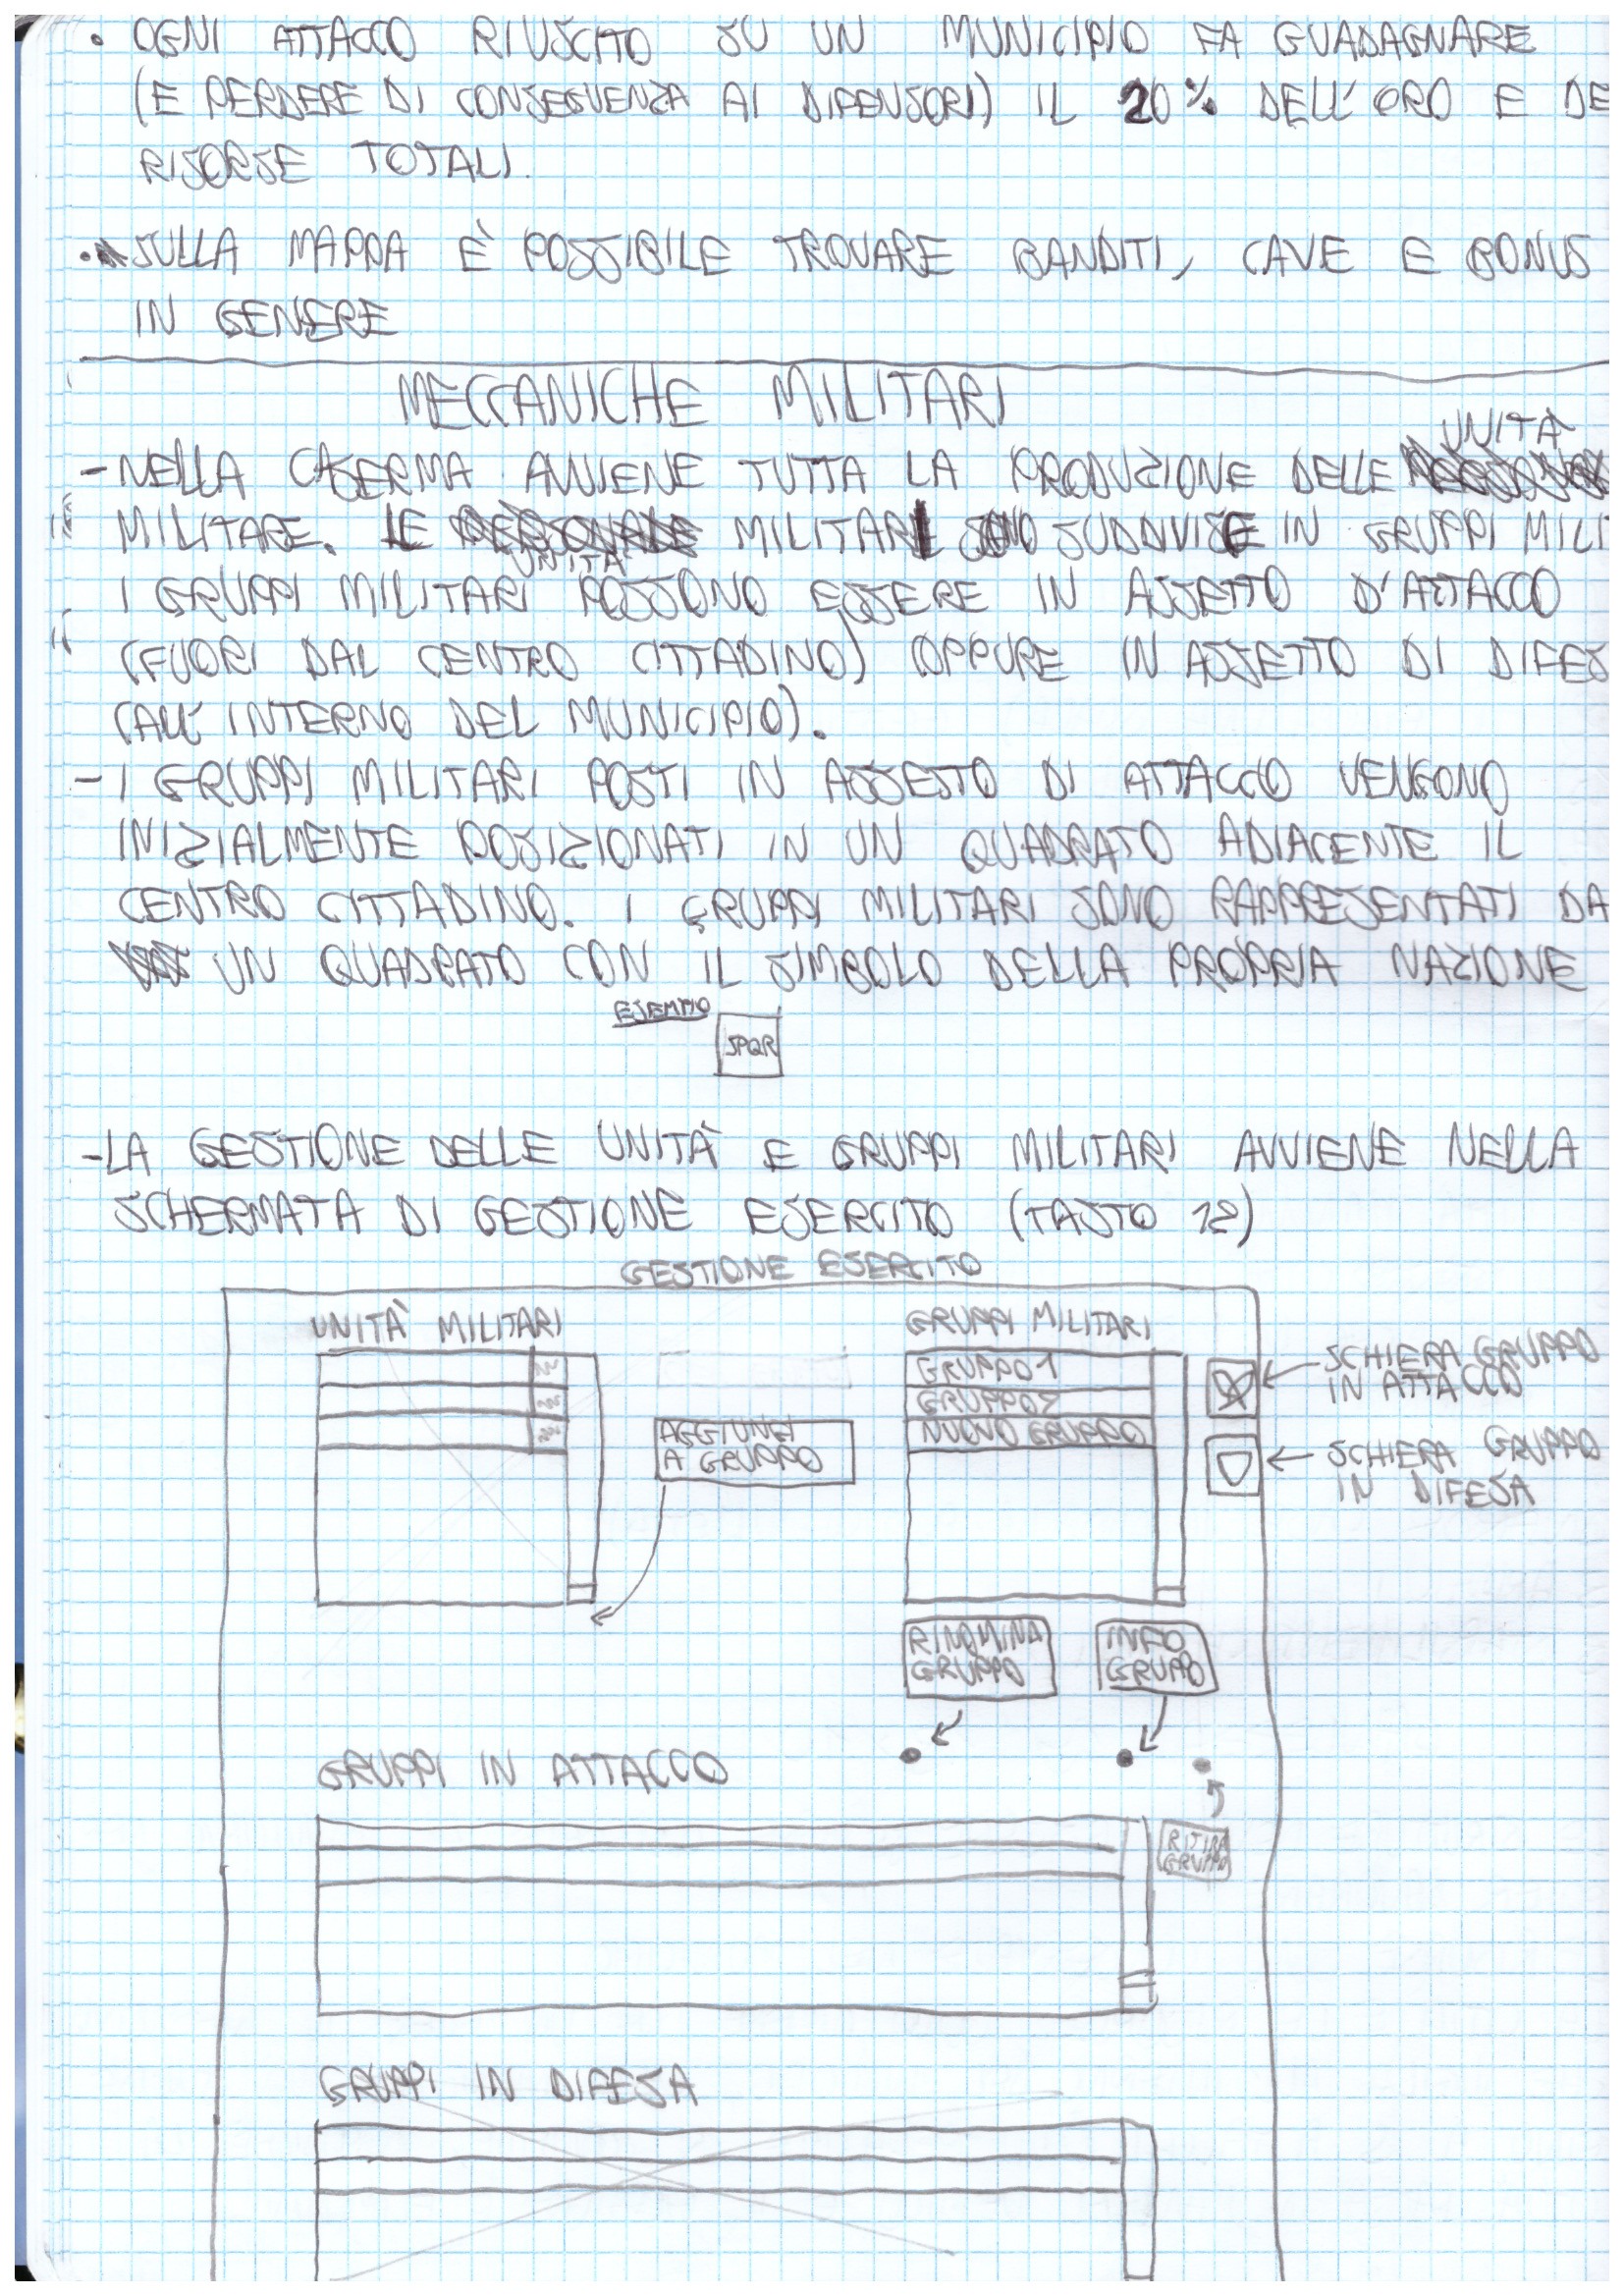 • OGNI ATTACCO RIUSCITO SU UN MUNICIPIO FA GUADAGNARE
(E PERDERE DI CONSEGUENZA AI DIFENSORI) IL 20% DELL'ORO E DE
RISORSE TOTALI.
• SULLA MAPPA È POSSIBILE TROVARE BANDITI, CAVE E BONUS
IN GENERE
MECCANICHE MILITARI
UNITÀ
- NELLA CASERMA AVVIENE TUTTA LA PRODUZIONE DELLE
MILITARE. LE MILITARI SONO SUDDIVISE IN GRUPPI MILI
UNITÀ
I GRUPPI MILITARI POSSONO ESSERE IN ASSETTO D'ATTACCO
(FUORI DAL CENTRO CITTADINO) OPPURE IN ASSETTO DI DIFES
(ALL'INTERNO DEL MUNICIPIO).
- I GRUPPI MILITARI POSTI IN ASSETTO DI ATTACCO VENGONO
INIZIALMENTE POSIZIONATI IN UN QUADRATO ADIACENTE IL
CENTRO CITTADINO. I GRUPPI MILITARI SONO RAPPRESENTATI DA
UN QUADRATO CON IL SIMBOLO DELLA PROPRIA NAZIONE
ESEMPIO
SPQR
- LA GESTIONE DELLE UNITÀ E GRUPPI MILITARI AVVIENE NELLA
SCHERMATA DI GESTIONE ESERCITO (TASTO 12)
GESTIONE ESERCITO
UNITÀ MILITARI
GRUPPI MILITARI
GRUPPO 1
GRUPPO 2
NUOVO GRUPPO
SCHIERA GRUPPO
IN ATTACCO
AGGIUNGI
A GRUPPO
SCHIERA GRUPPO
IN DIFESA
RINOMINA
GRUPPO
INFO
GRUPPO
GRUPPI IN ATTACCO
RITIRA
GRUPPO
GRUPPI IN DIFESA